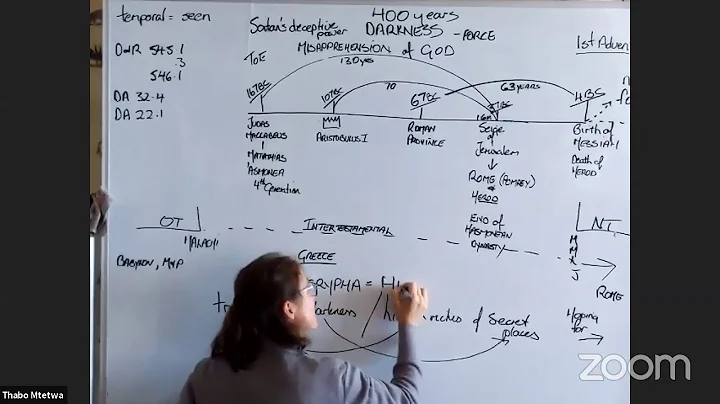 temporal = seen
400 years
Satan's deceptive power
DARKNESS - FORCE
MISAPPREHENSION of GOD
1st Adven
ToE
130 yrs
DWR 545.1
.3
546.1
DA 32.4
DA 22.1
167BC
107BC
70
67BC
63 YEARS
37BC
4BC
JUDAS MACCABEUS
MATTATHIAS
ASMONEA
4th Generation
ARISTOBULUS I
ROMAN PROVINCE
Seige of Jerusalem
ROME (POMPEY)
&
HEROD
END OF HASMONEAN DYNASTY
Birth of MESSIAH
Death of HEROD
OT
MALACHI
INTERTESTAMENTAL
NT
M
M
J
BABYLON, M&P
GREECE
ROME
CRYPHA = HI
darkness
of Secret places
Hoping for
Thabo Mtetwa
zoom